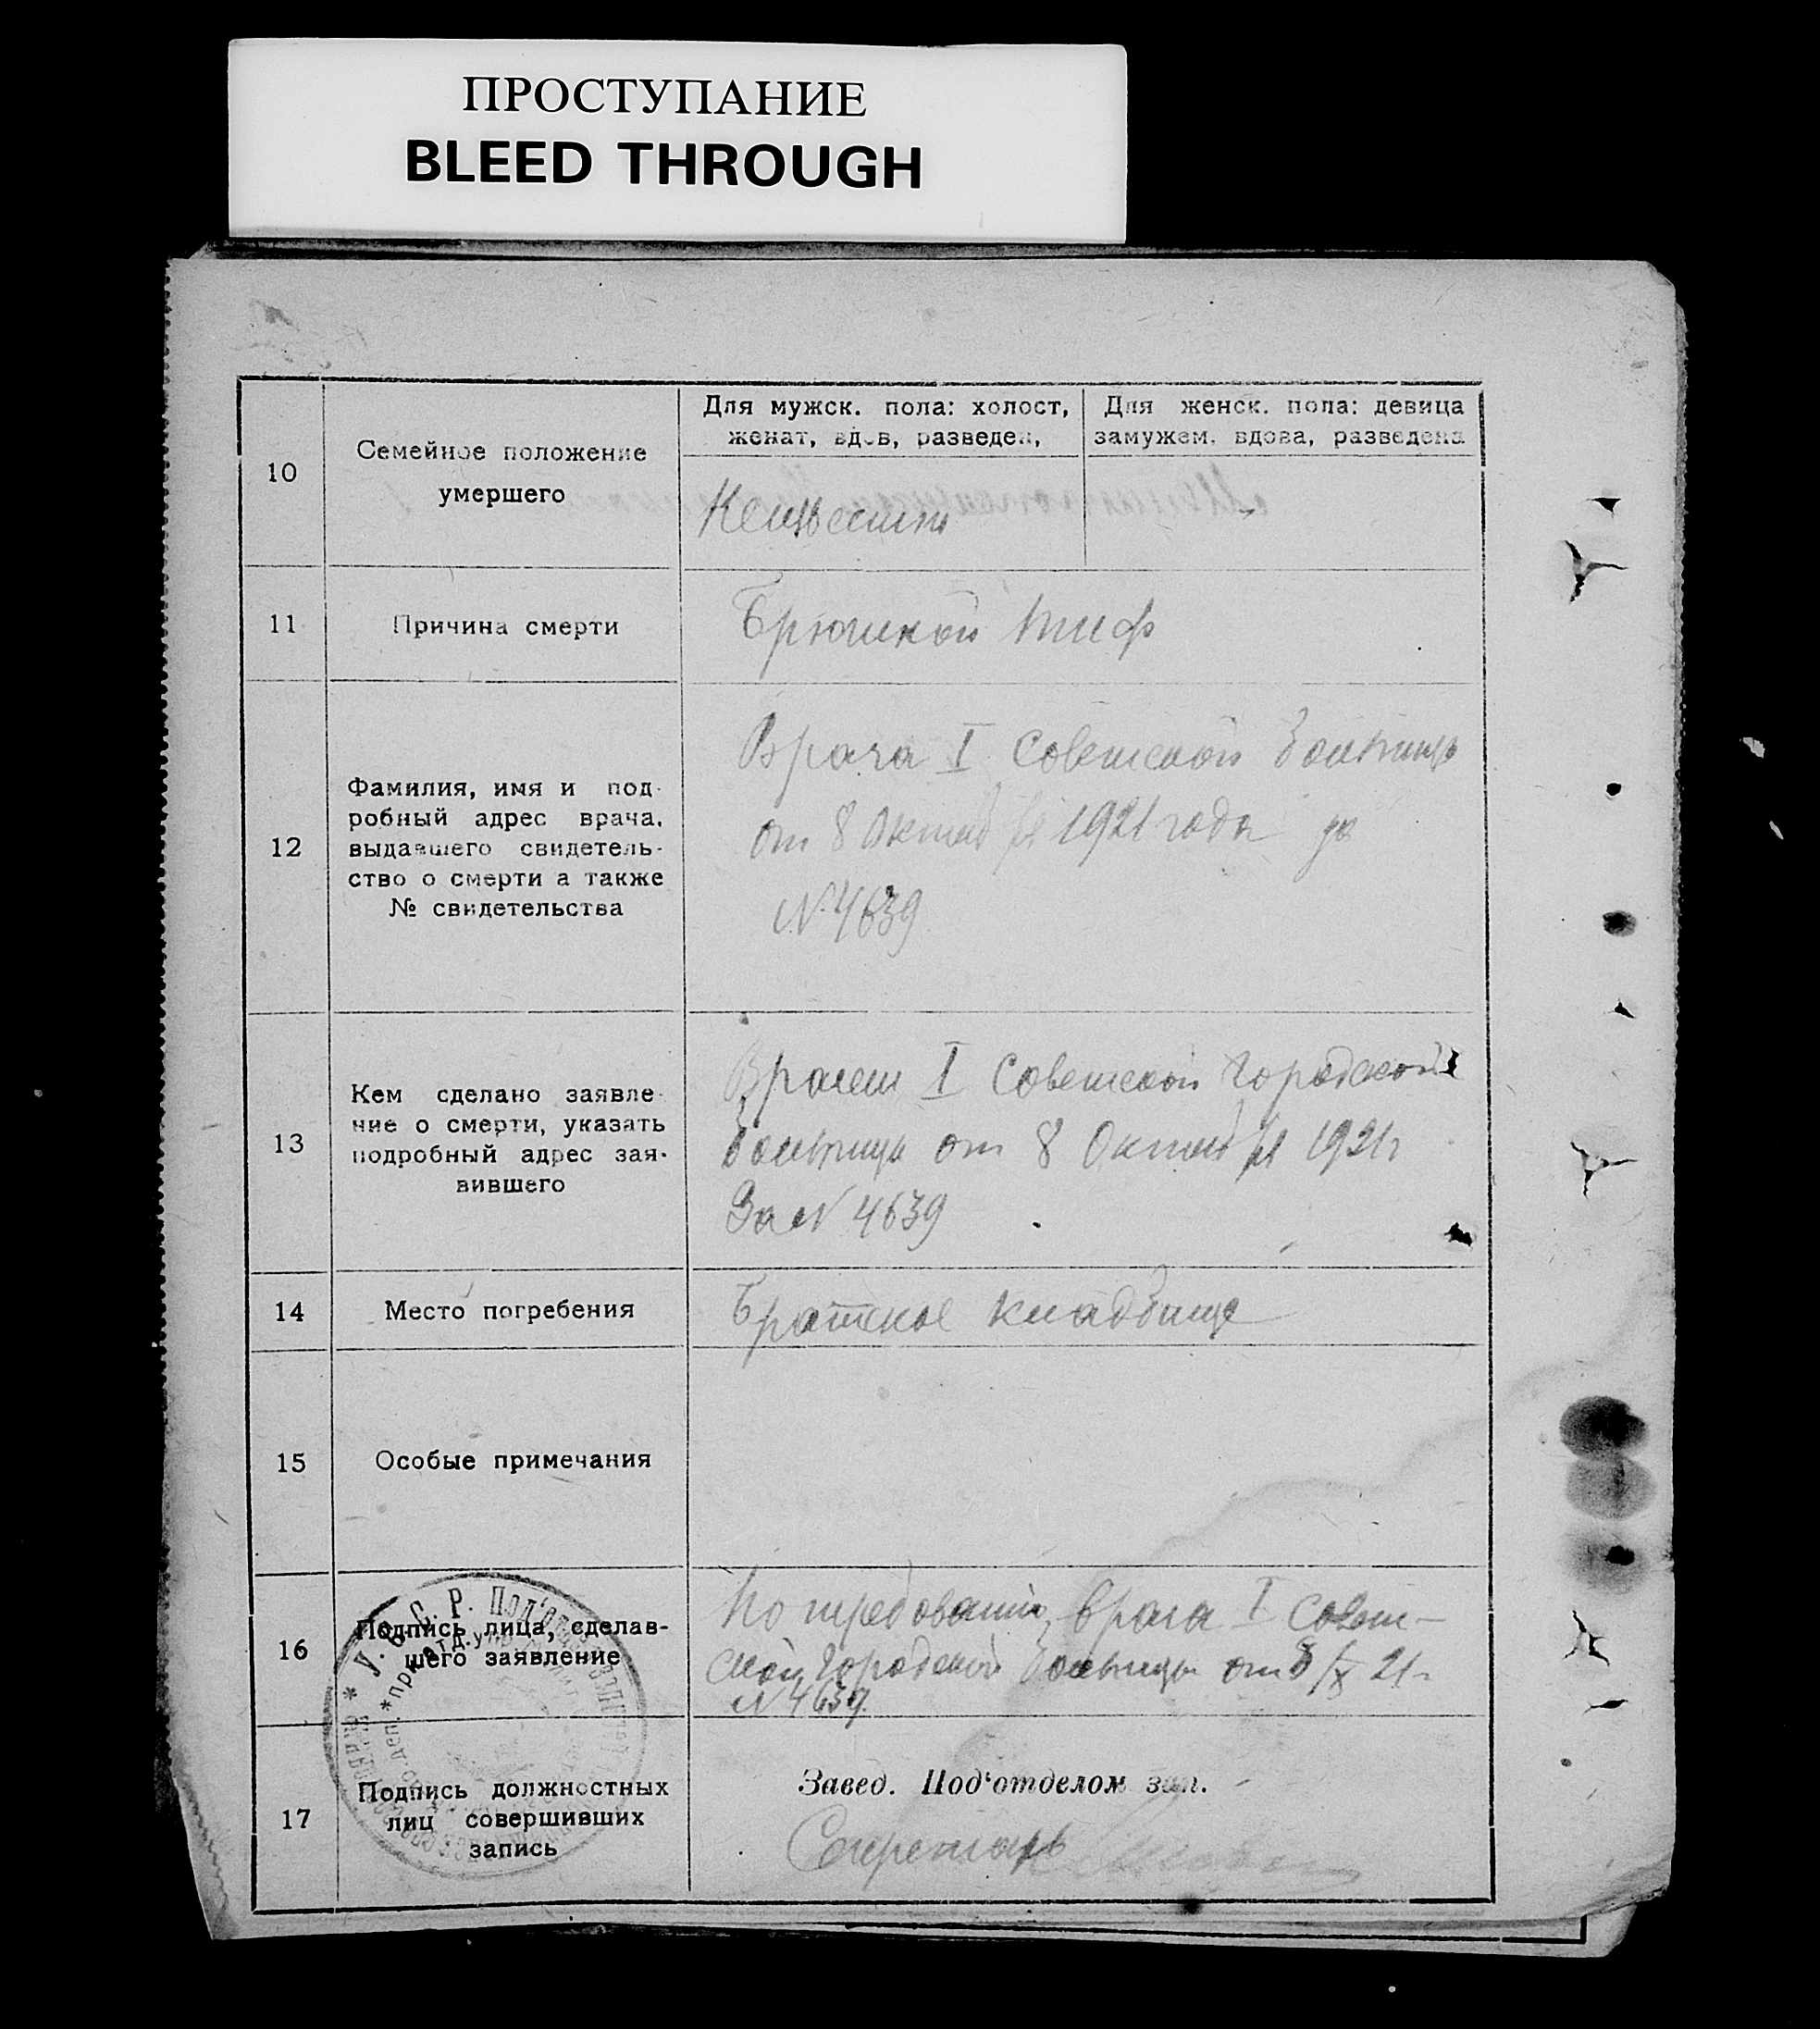 ПРОСТУПАНИЕ
BLEED THROUGH
10
Семейное положение
умершего
Для мужск. пола: холост,
женат, вдов, разведен,
Для женск. пола: девица
замужем, вдова, разведена
Неизвестно
11
Причина смерти
Брюшной тиф
12
Фамилия, имя и под-
робный адрес врача,
выдавшего свидетель-
ство о смерти а также
№ свидетельства
Врача I Советской больницы
от 8 Октября 1921 года за
№ 4639
13
Кем сделано заявле-
ние о смерти, указать
подробный адрес зая-
вившего
Врачем I Советской Городской
больницы от 8 Октября 1921г
За № 4639
14
Место погребения
Братское кладбище
15
Особые примечания
16
Подпись лица, сделав-
шего заявление
По требованию врача I Совет-
ской Городской больницы от 8/X 21г
№ 4639.
17
Подпись должностных
лиц совершивших
запись
Завед. Под‘отделом зап.
Секретарь
У. С. С. Р. Под‘отдел